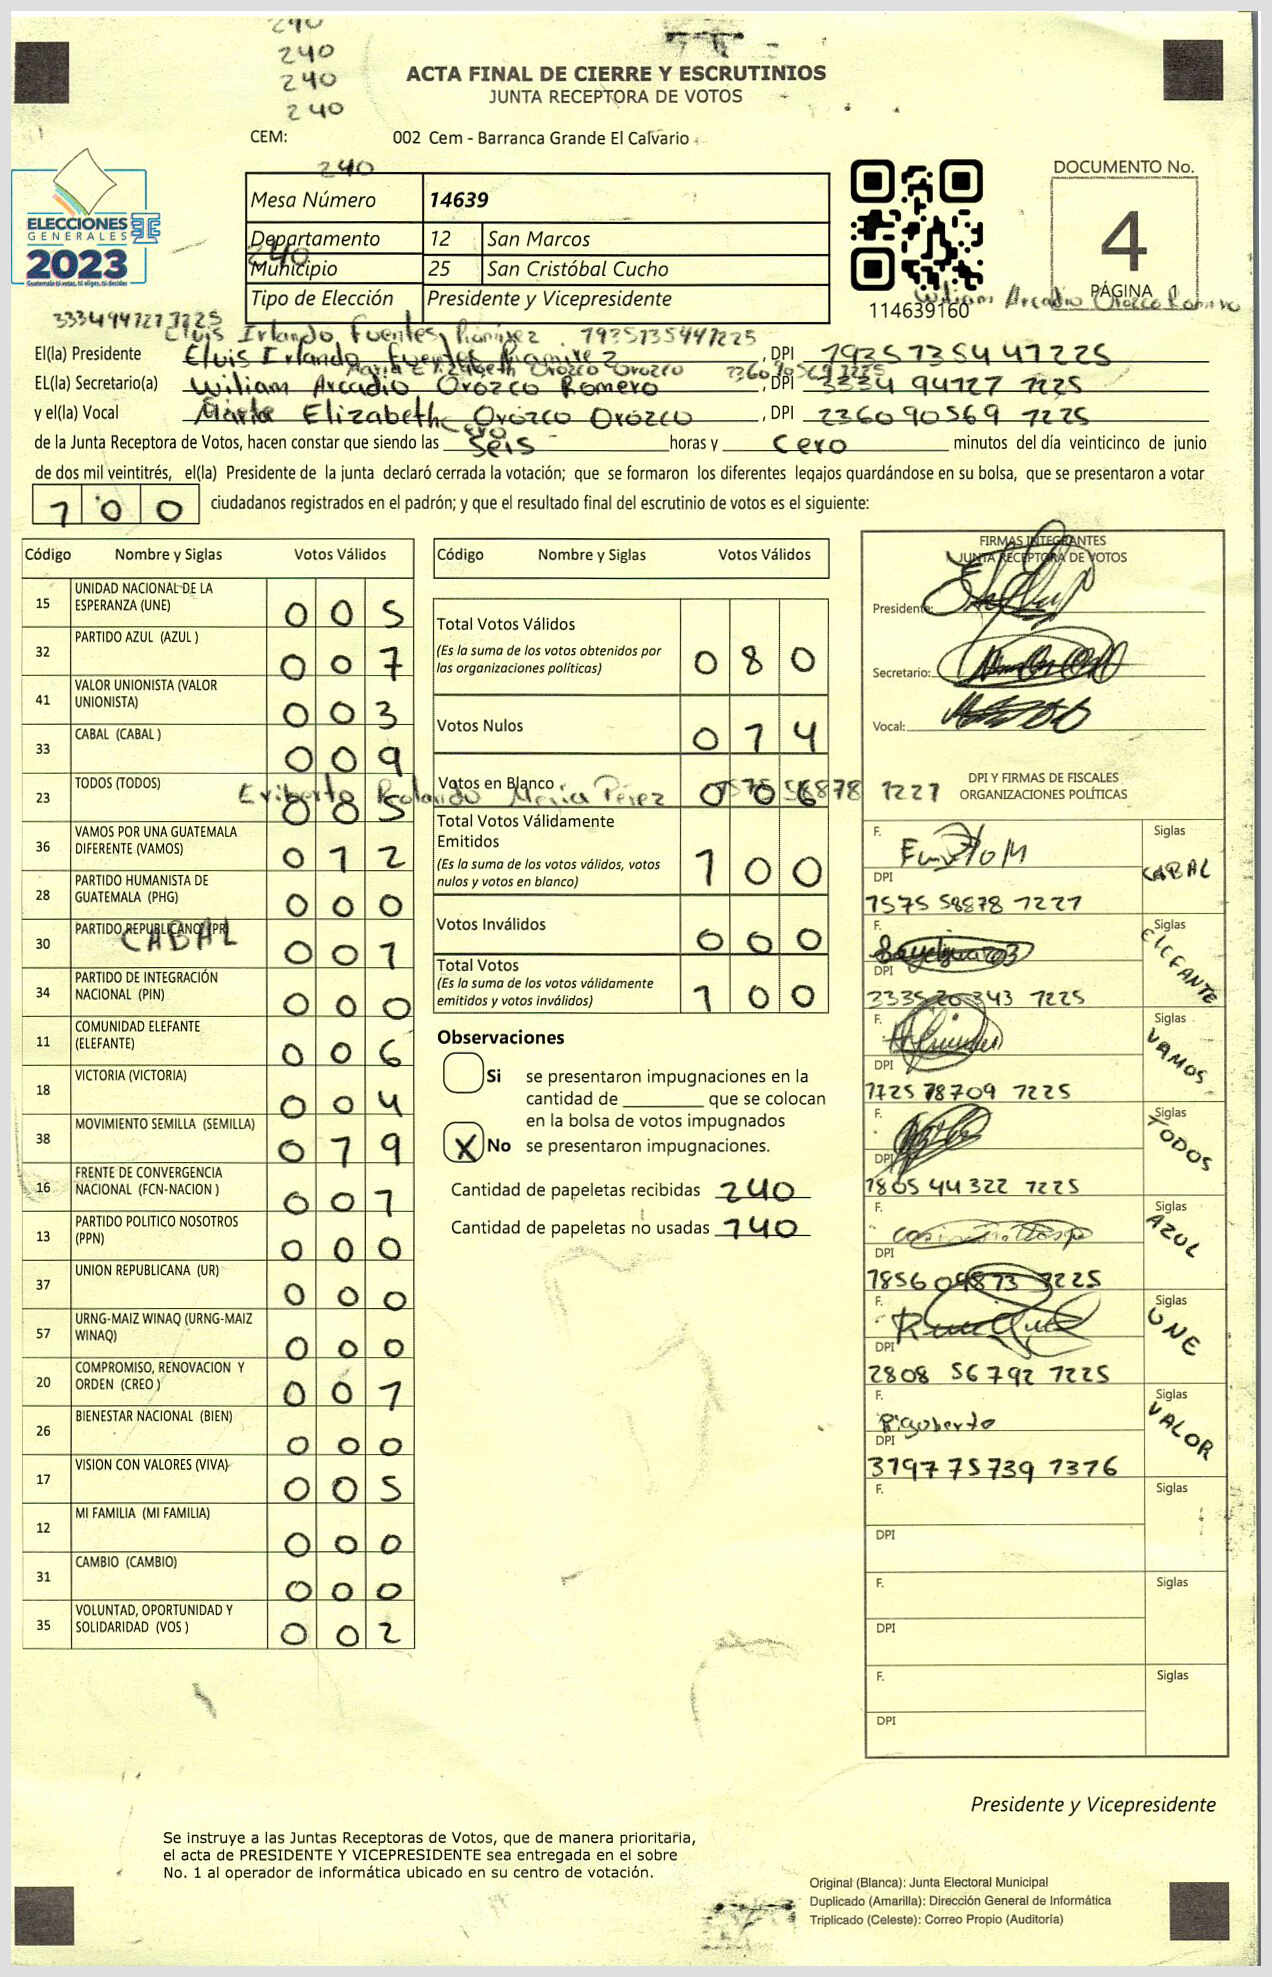 240
240
240
240
ACTA FINAL DE CIERRE Y ESCRUTINIOS
JUNTA RECEPTORA DE VOTOS
CEM: 002 Cem - Barranca Grande El Calvario
240
DOCUMENTO No.
4
PÁGINA 1
ELECCIONES
GENERALES
2023
Guatemala tú votas, tú eliges, tú decides
Mesa Número 14639
Departamento 12 San Marcos
240
Municipio 25 San Cristóbal Cucho
Tipo de Elección Presidente y Vicepresidente
114639160
Wiliam Arcadio Orozco Romero
3334941271225
Eluis Irlando Fuentes Ramirez 1935735441225
El(la) Presidente Eluis Irlando Fuentes Ramirez , DPI 1935735441225
Maria Elizabeth Orozco Orozco 2360905691225
EL(la) Secretario(a) Wiliam Arcadio Orozco Romero , DPI 3334 94127 1225
y el(la) Vocal Maria Elizabeth Orozco Orozco , DPI 2360 90569 1225
Cero
de la Junta Receptora de Votos, hacen constar que siendo las Seis horas y Cero minutos del día veinticinco de junio
de dos mil veintitrés, el(la) Presidente de la junta declaró cerrada la votación; que se formaron los diferentes legajos guardándose en su bolsa, que se presentaron a votar
100 ciudadanos registrados en el padrón; y que el resultado final del escrutinio de votos es el siguiente:
Código Nombre y Siglas Votos Válidos
15 UNIDAD NACIONAL DE LA ESPERANZA (UNE) 005
32 PARTIDO AZUL (AZUL ) 007
41 VALOR UNIONISTA (VALOR UNIONISTA) 003
33 CABAL (CABAL ) 009
23 TODOS (TODOS) 005
Eriberto Rolando Mejia Pérez 1575 58878 1227
36 VAMOS POR UNA GUATEMALA DIFERENTE (VAMOS) 012
28 PARTIDO HUMANISTA DE GUATEMALA (PHG) 000
30 PARTIDO REPUBLICANO (PR) 001
CABAL
34 PARTIDO DE INTEGRACIÓN NACIONAL (PIN) 000
11 COMUNIDAD ELEFANTE (ELEFANTE) 006
18 VICTORIA (VICTORIA) 004
38 MOVIMIENTO SEMILLA (SEMILLA) 019
16 FRENTE DE CONVERGENCIA NACIONAL (FCN-NACION ) 001
13 PARTIDO POLITICO NOSOTROS (PPN) 000
37 UNION REPUBLICANA (UR) 000
57 URNG-MAIZ WINAQ (URNG-MAIZ WINAQ) 000
20 COMPROMISO, RENOVACION Y ORDEN (CREO ) 001
26 BIENESTAR NACIONAL (BIEN) 000
17 VISION CON VALORES (VIVA) 005
12 MI FAMILIA (MI FAMILIA) 000
31 CAMBIO (CAMBIO) 000
35 VOLUNTAD, OPORTUNIDAD Y SOLIDARIDAD (VOS ) 002
Código Nombre y Siglas Votos Válidos
Total Votos Válidos
(Es la suma de los votos obtenidos por
las organizaciones políticas) 080
Votos Nulos 014
Votos en Blanco 006
Total Votos Válidamente
Emitidos
(Es la suma de los votos válidos, votos
nulos y votos en blanco) 100
Votos Inválidos 000
Total Votos
(Es la suma de los votos válidamente
emitidos y votos inválidos) 100
Observaciones
Si se presentaron impugnaciones en la
cantidad de ________ que se colocan
en la bolsa de votos impugnados
X No se presentaron impugnaciones.
Cantidad de papeletas recibidas 240
Cantidad de papeletas no usadas 140
FIRMAS INTEGRANTES
JUNTA RECEPTORA DE VOTOS
Presidente:
Secretario:
Vocal:
DPI Y FIRMAS DE FISCALES
ORGANIZACIONES POLÍTICAS
F. Siglas CABAL
DPI 1575 58878 1227
F. Siglas ELEFANTE
DPI 2335 20 343 1225
F. Siglas VAMOS
DPI 1725 78709 1225
F. Siglas TODOS
DPI 1805 44 322 1225
F. Siglas AZUL
DPI 1856 09873 1225
F. Siglas UNE
DPI 2808 56792 1225
F. Rigoberto Siglas VALOR
DPI 3197 75739 1316
F. Siglas
DPI
F. Siglas
DPI
F. Siglas
DPI
Presidente y Vicepresidente
Se instruye a las Juntas Receptoras de Votos, que de manera prioritaria,
el acta de PRESIDENTE Y VICEPRESIDENTE sea entregada en el sobre
No. 1 al operador de informática ubicado en su centro de votación.
Original (Blanca): Junta Electoral Municipal
Duplicado (Amarilla): Dirección General de Informática
Triplicado (Celeste): Correo Propio (Auditoría)